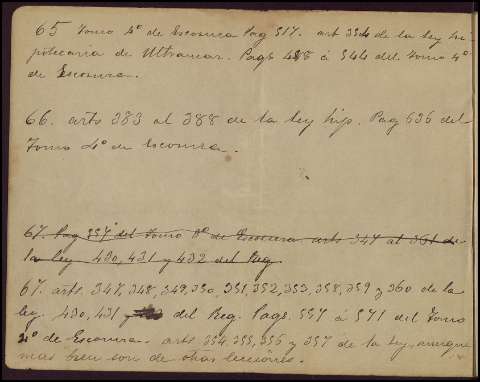 65 Tomo 4º de Escosura Pag 517. art 354 de la ley hi-
potecaria de Ultramar. Pags 488 á 544 del tomo 4º
de Escosura.
66. arts 383 al 388 de la ley hip. Pag 636 del
Tomo 4º de Escosura.
67. Pag 557 del Tomo 4º de Escosura arts 347 al 361 de
la ley 430, 431 y 432 del Reg.
67. arts. 347, 348, 349, 350, 351, 352, 353, 358, 359 y 360 de la
ley. 430, 431 y del Reg. Pags. 557 á 571 del Tomo
4º de Escosura. arts 354, 355, 356 y 357 de la ley, aunque
mas bien son de otras lecciónes.